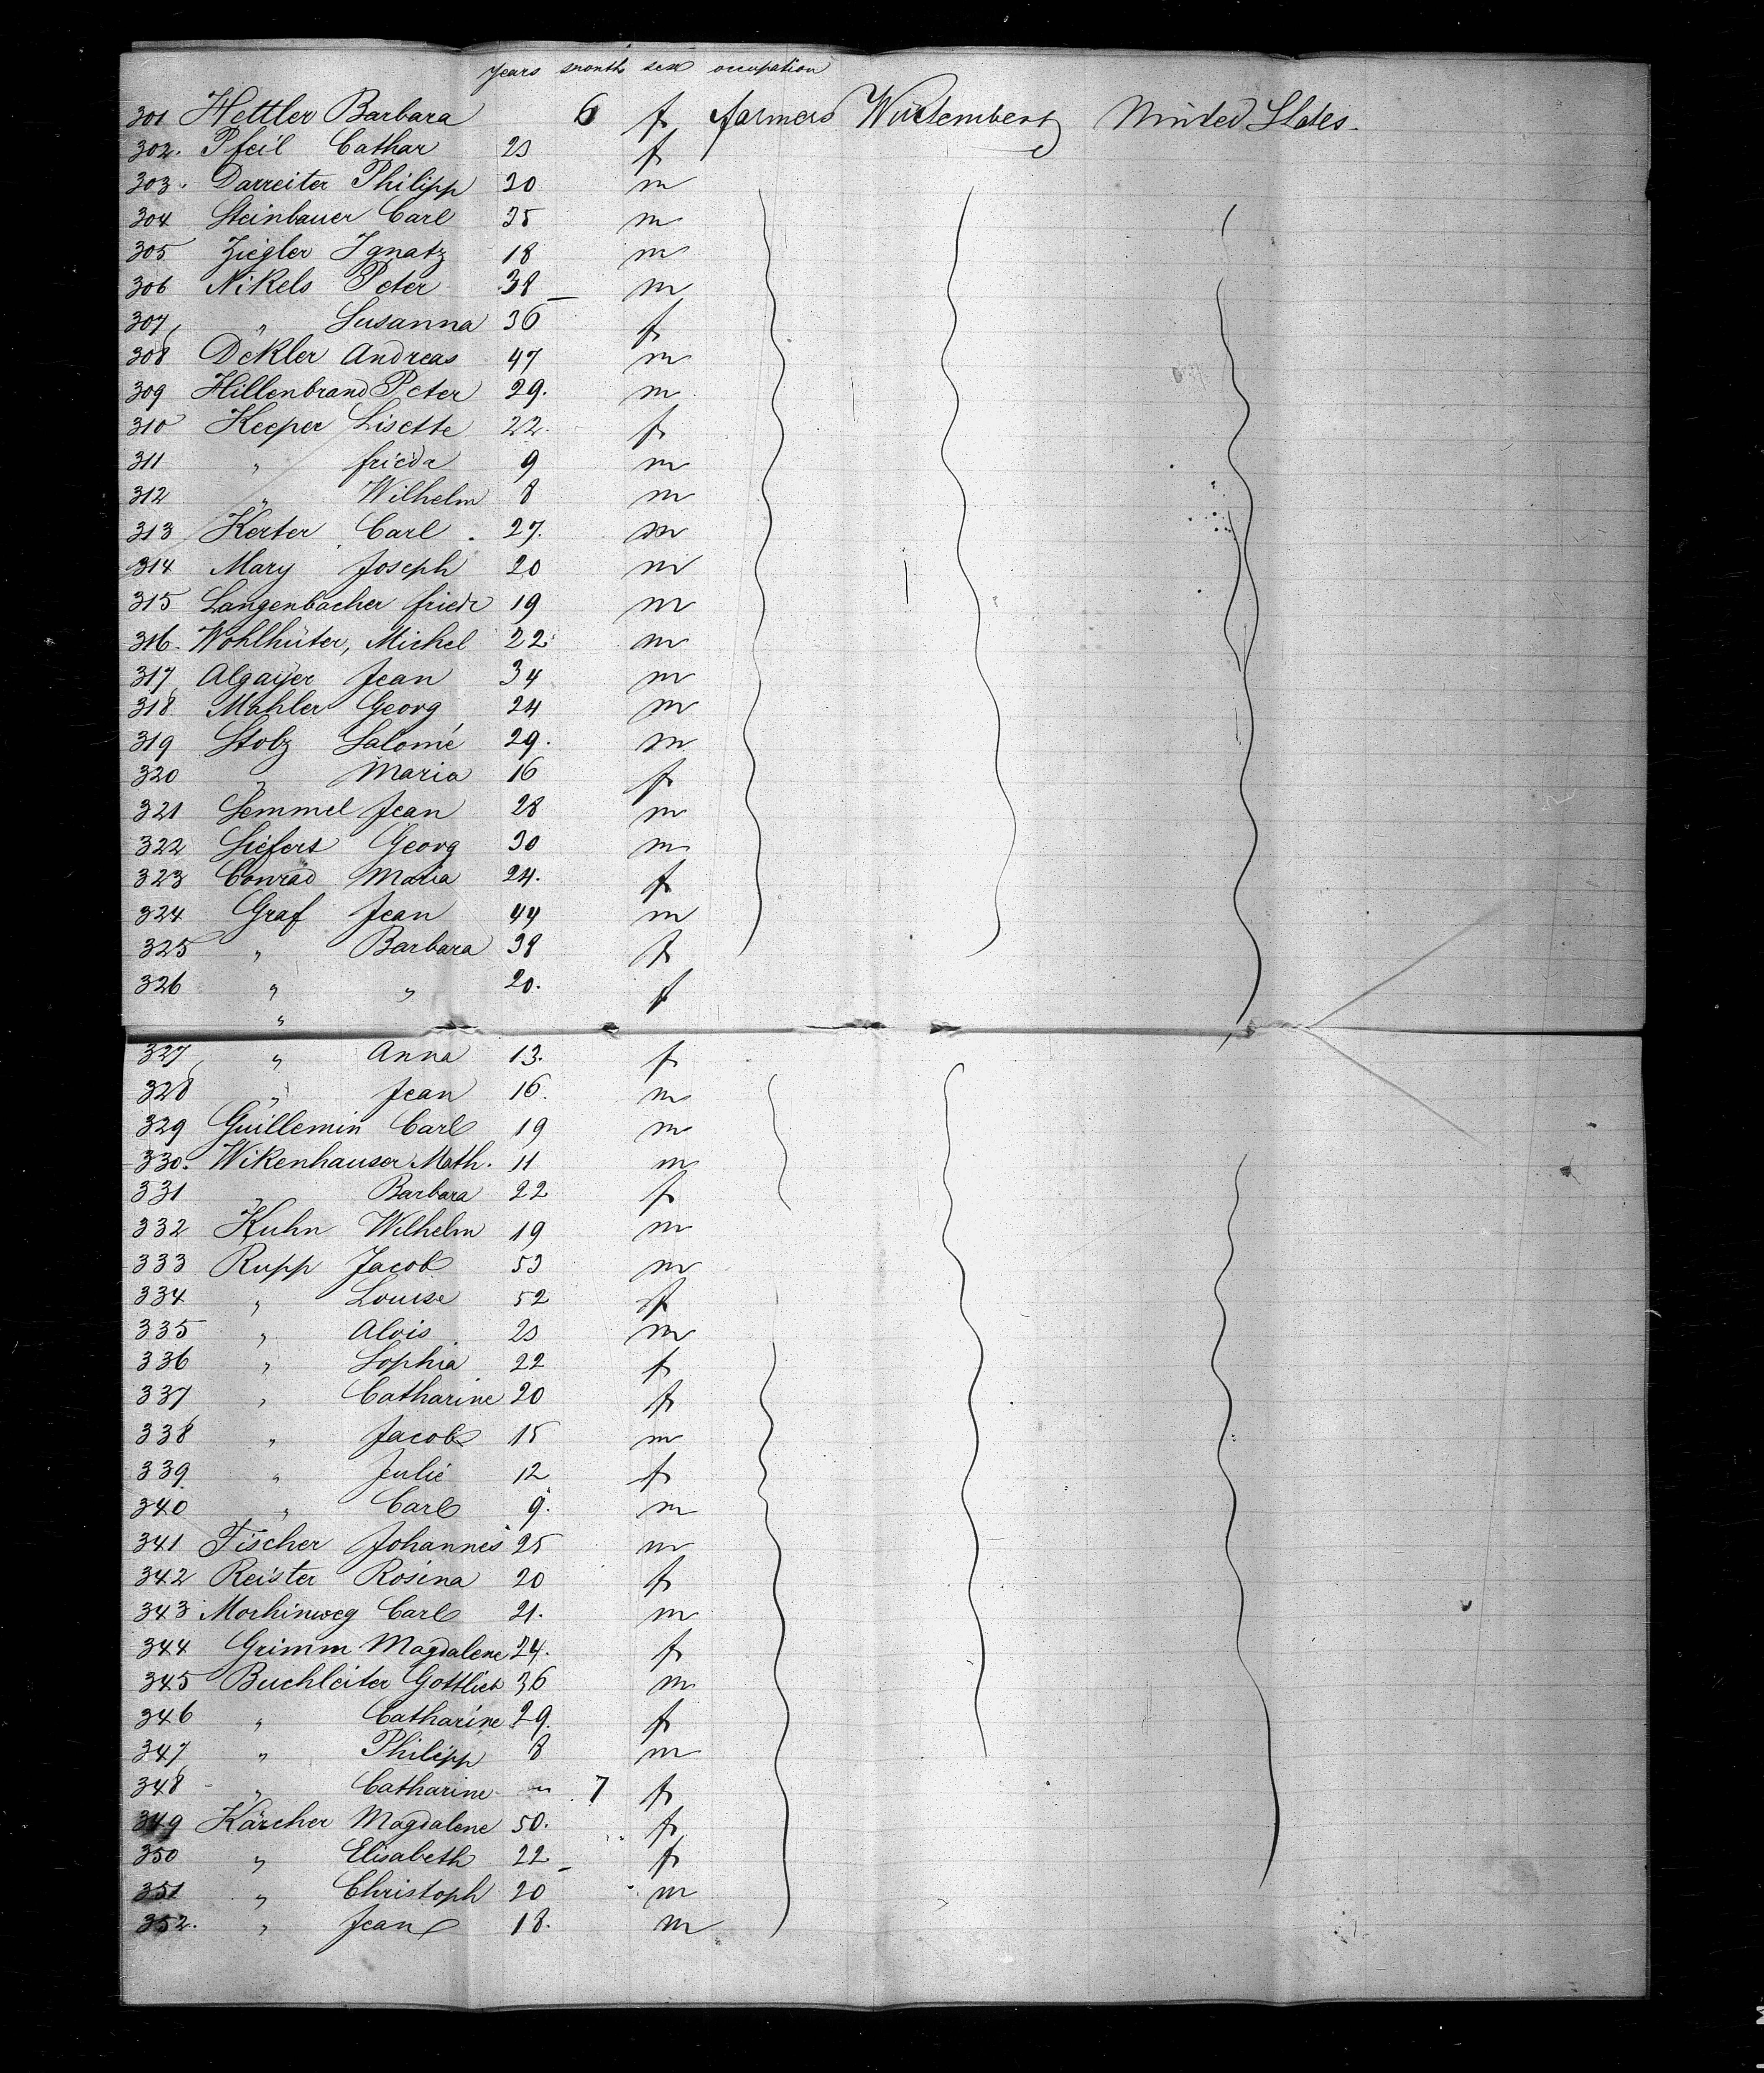 years month sex occupation
301 Hettler Barbara 6 f farmers Würtemberg United States.
302. Pfeil Cathar 23 f
303. Darreiter Philipp 30 m
304 Steinbauer Carl 35 m
305 Ziegler Ignatz 18 m
306 Nikels Peter 38 m
307, " Susanna 36 f
308 Dekler Andreas 47 m
309 Hillenbrand Peter 29. m
310 Keeper Lisette 22. f
311 " friedr 9 m
312 " Wilhelm 8 m
313 Kerter Carl. 27. m
314 Mary Joseph 20 m
315 Langenbacher friedr 19 m
316. Wohlhüter, Michel 22 m
317, Algayer Jean 34 m
318 Mahler Georg 24 m
319 Stolz Salomé 29. m
320 " Maria 16 f
321 Semmel Jean 28 m
322 Siefert Georg 30 m
323 Conrad Maria 24. f
324 Graf Jean 44 m
325 " Barbara 38 f
326 " " 20. f
"
327, " Anna 13. f
328 " Jean 16. m
329 Guillemin Carl 19 m
330. Wikenhauser Math. 11 m
331 Barbara 22 f
332 Kuhn Wilhelm 19 m
333 Rupp Jacob 53 m
334 " Louise 52 f
335 " Alois 23 m
336 " Sophia 22 f
337 " Catharine 20 f
338 " Jacob 15 m
339 " Julie 12 f
340 " Carl 9. m
341 Fischer Johannes 25 m
342 Reister Rosina 20 f
343 Morhinweg Carl 21. m
344 Grimm Magdalene 24. f
345 Buchleiter Gottlieb 36 m
346 " Catharine 29. f
347, " Philipp 8 m
348 " Catharine " 7 f
349 Kärcher Magdalene 50. f
350 " Elisabeth 22 f
351 " Christoph 20 m
352. " Jean 18. m